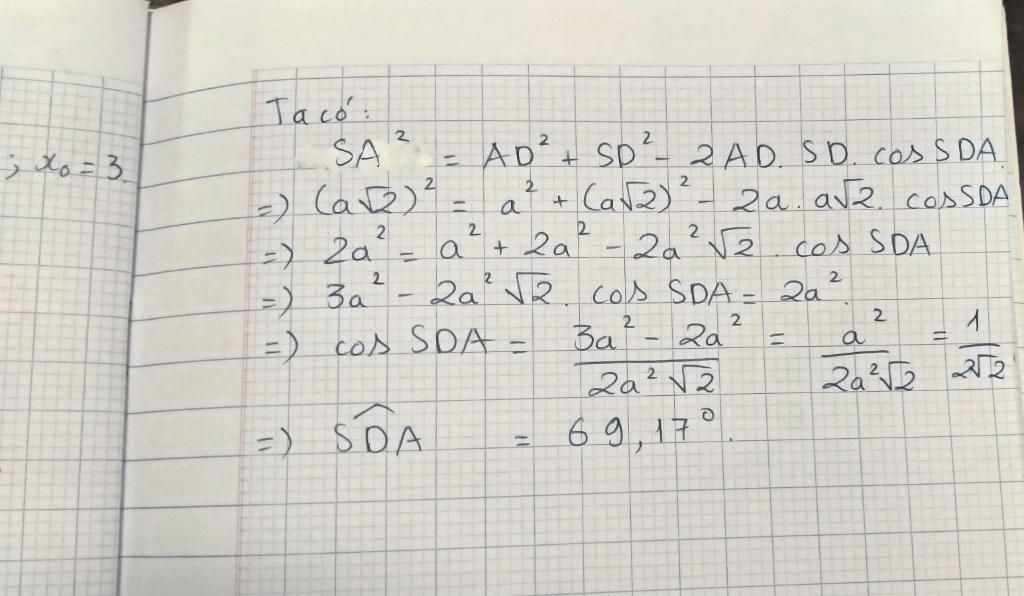 ; x₀ = 3
Ta có:
SA² = AD² + SD² - 2AD. SD. cos SDA
=) (a√2)² = a² + (a√2)² - 2a. a√2. cos SDA
=) 2a² = a² + 2a² - 2a²√2. cos SDA
=) 3a² - 2a²√2. cos SDA = 2a².
=) cos SDA = \frac{3a² - 2a²}{2a²√2} = \frac{a²}{2a²√2} = \frac{1}{2√2}
=) \widehat{SDA} = 69,17⁰.